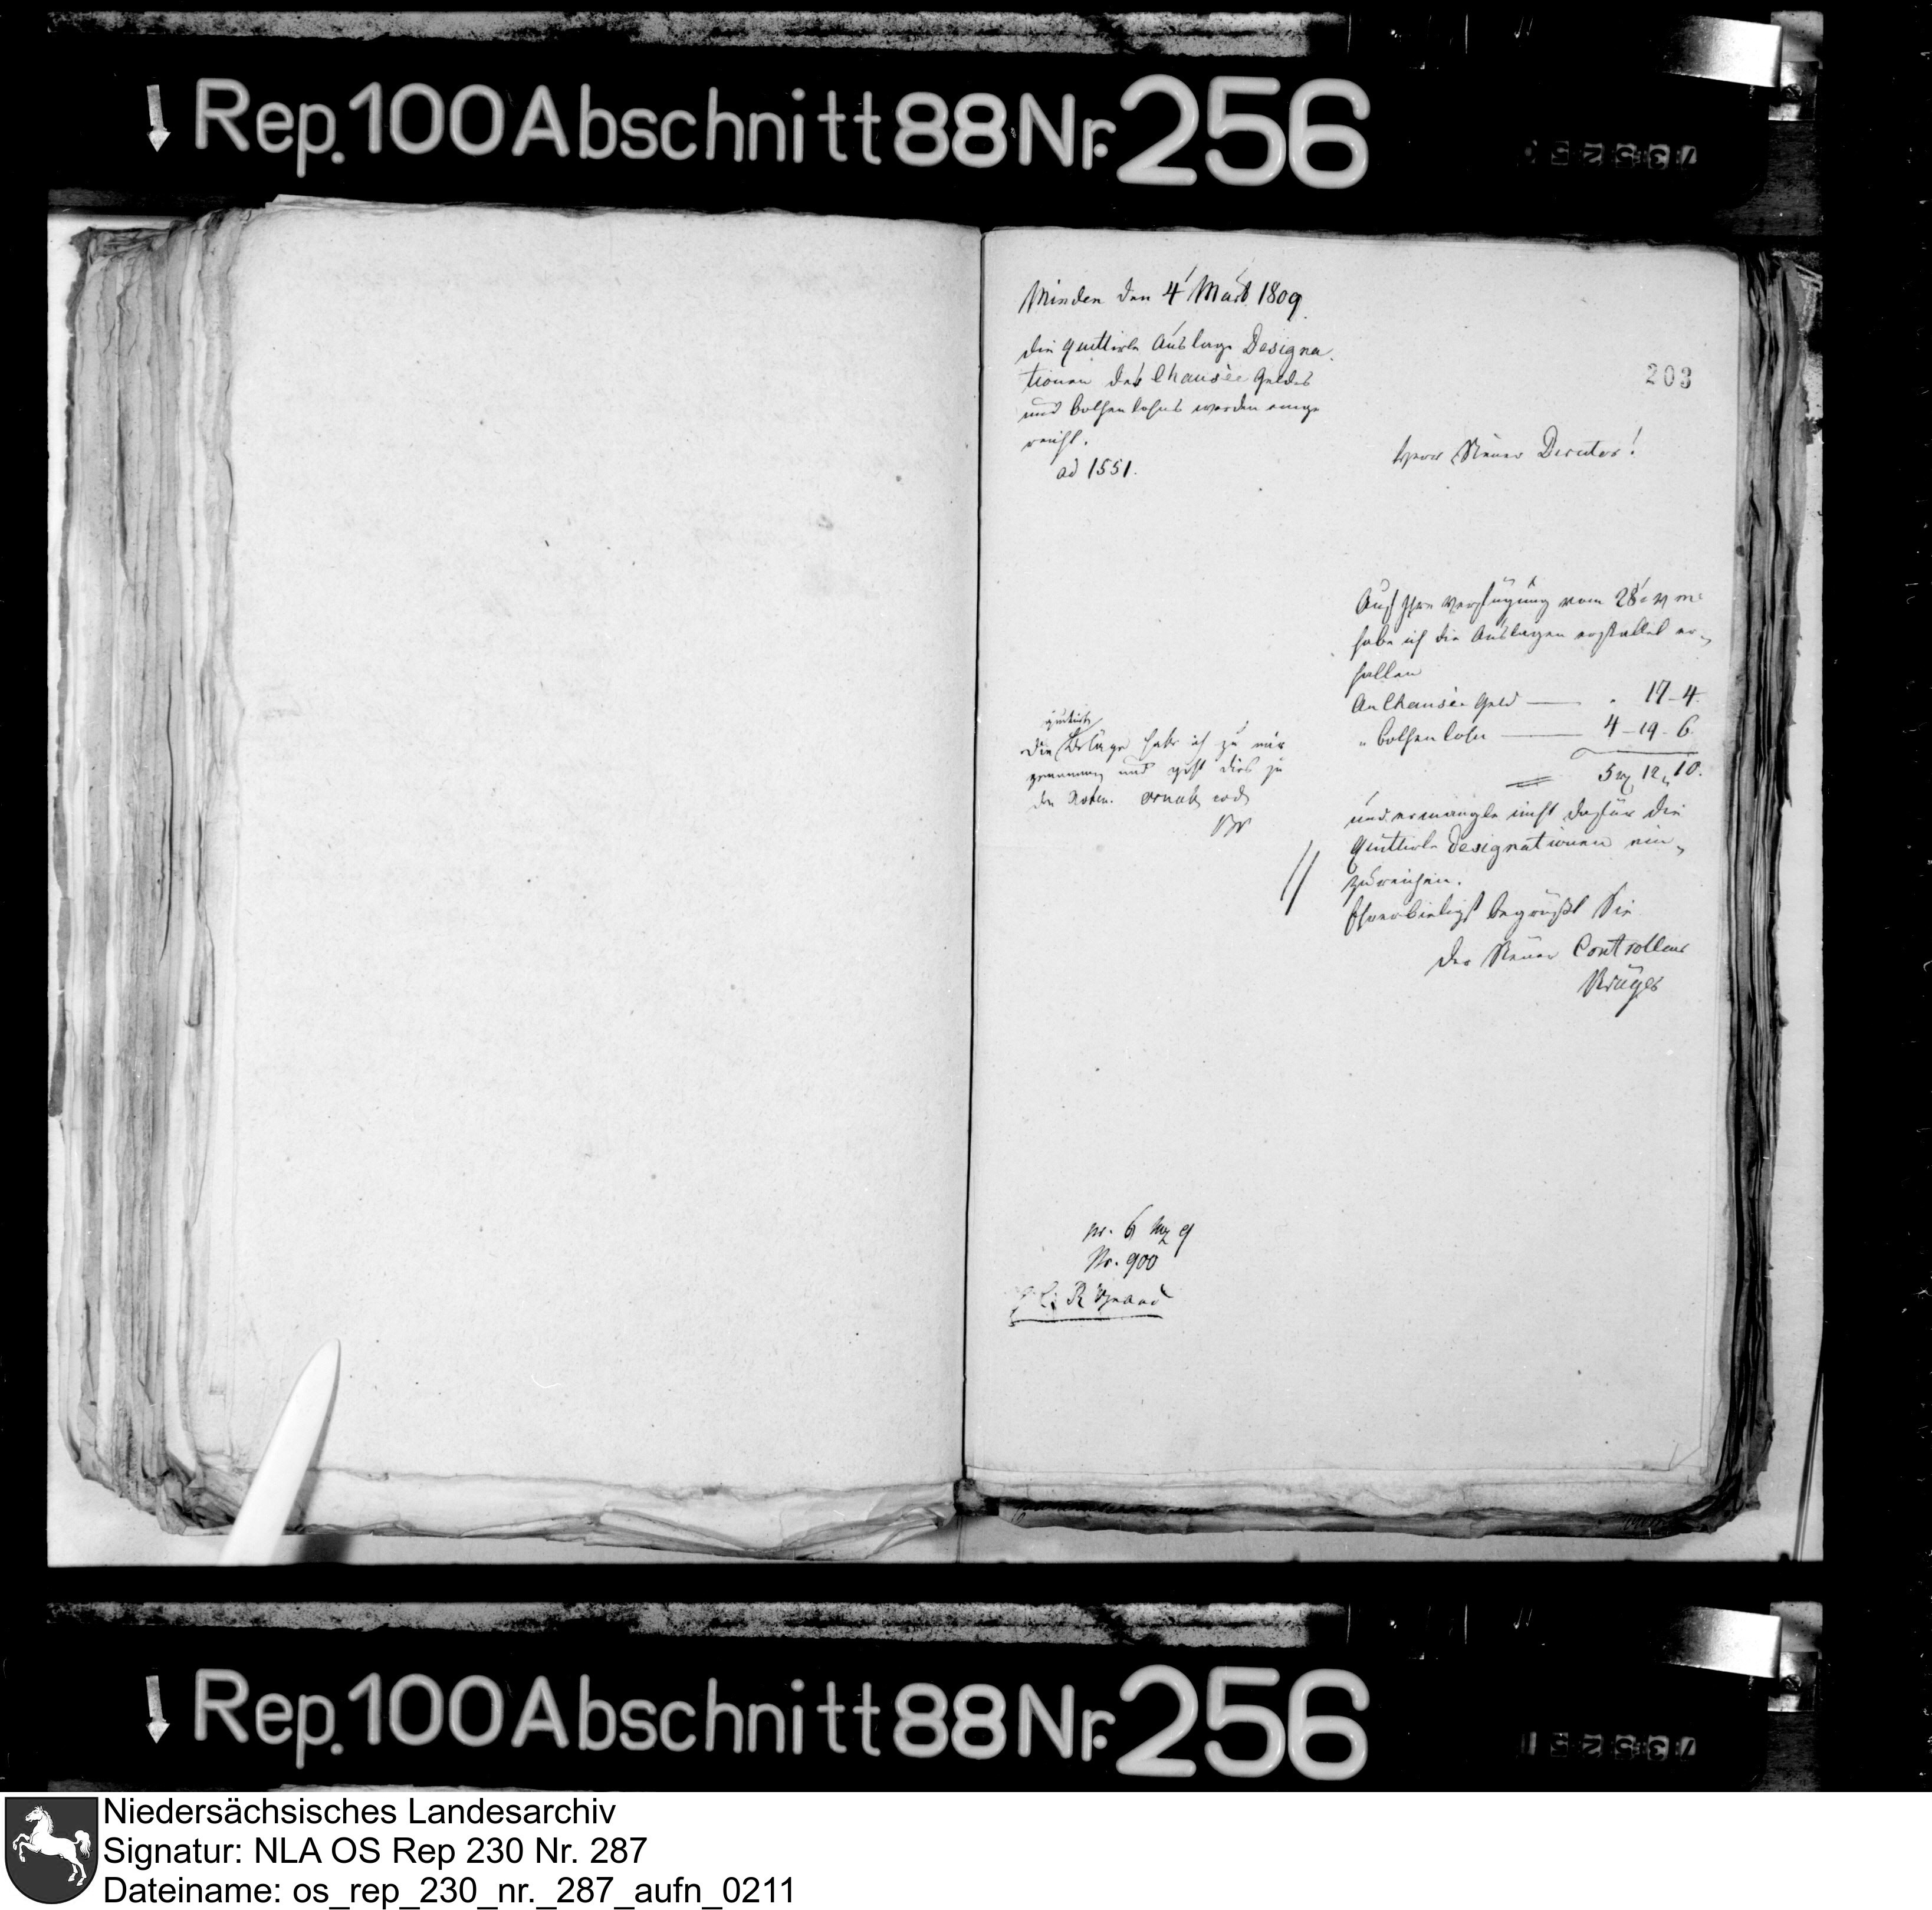 Rep. 100 Abschnitt 88 Nr. 256
Minden den 4 Märtz 1809.
die quittirte Auslage Designa
tionen des Chausée Geldes
und Bothenlohns werden einge
reicht.
ad 1551.
203
Herr Steuer Director!
Auf Ihre Verfügung vom 28 v m:
habe ich die Auslagen erstattet er-
halten
An Chausée Geld — " 17 - 4
" Bothenlohn — 4 - 19 - 6
5 12 10.
und ermangle nicht dafür die
Quittirte Designationen ein-
zureichen.
Ehrerbietigst begrüßt Sie
der Steuer Controlleur
Krüger
quittirte
Die Beläge habe ich zu mir
genommen und geht dies zu
den Acten.
pr. 6 Mz 9
Nr. 900
Rep. 100 Abschnitt 88 Nr. 256
Niedersächsisches Landesarchiv
Signatur: NLA OS Rep 230 Nr. 287
Dateiname: os_rep_230_nr._287_aufn_0211